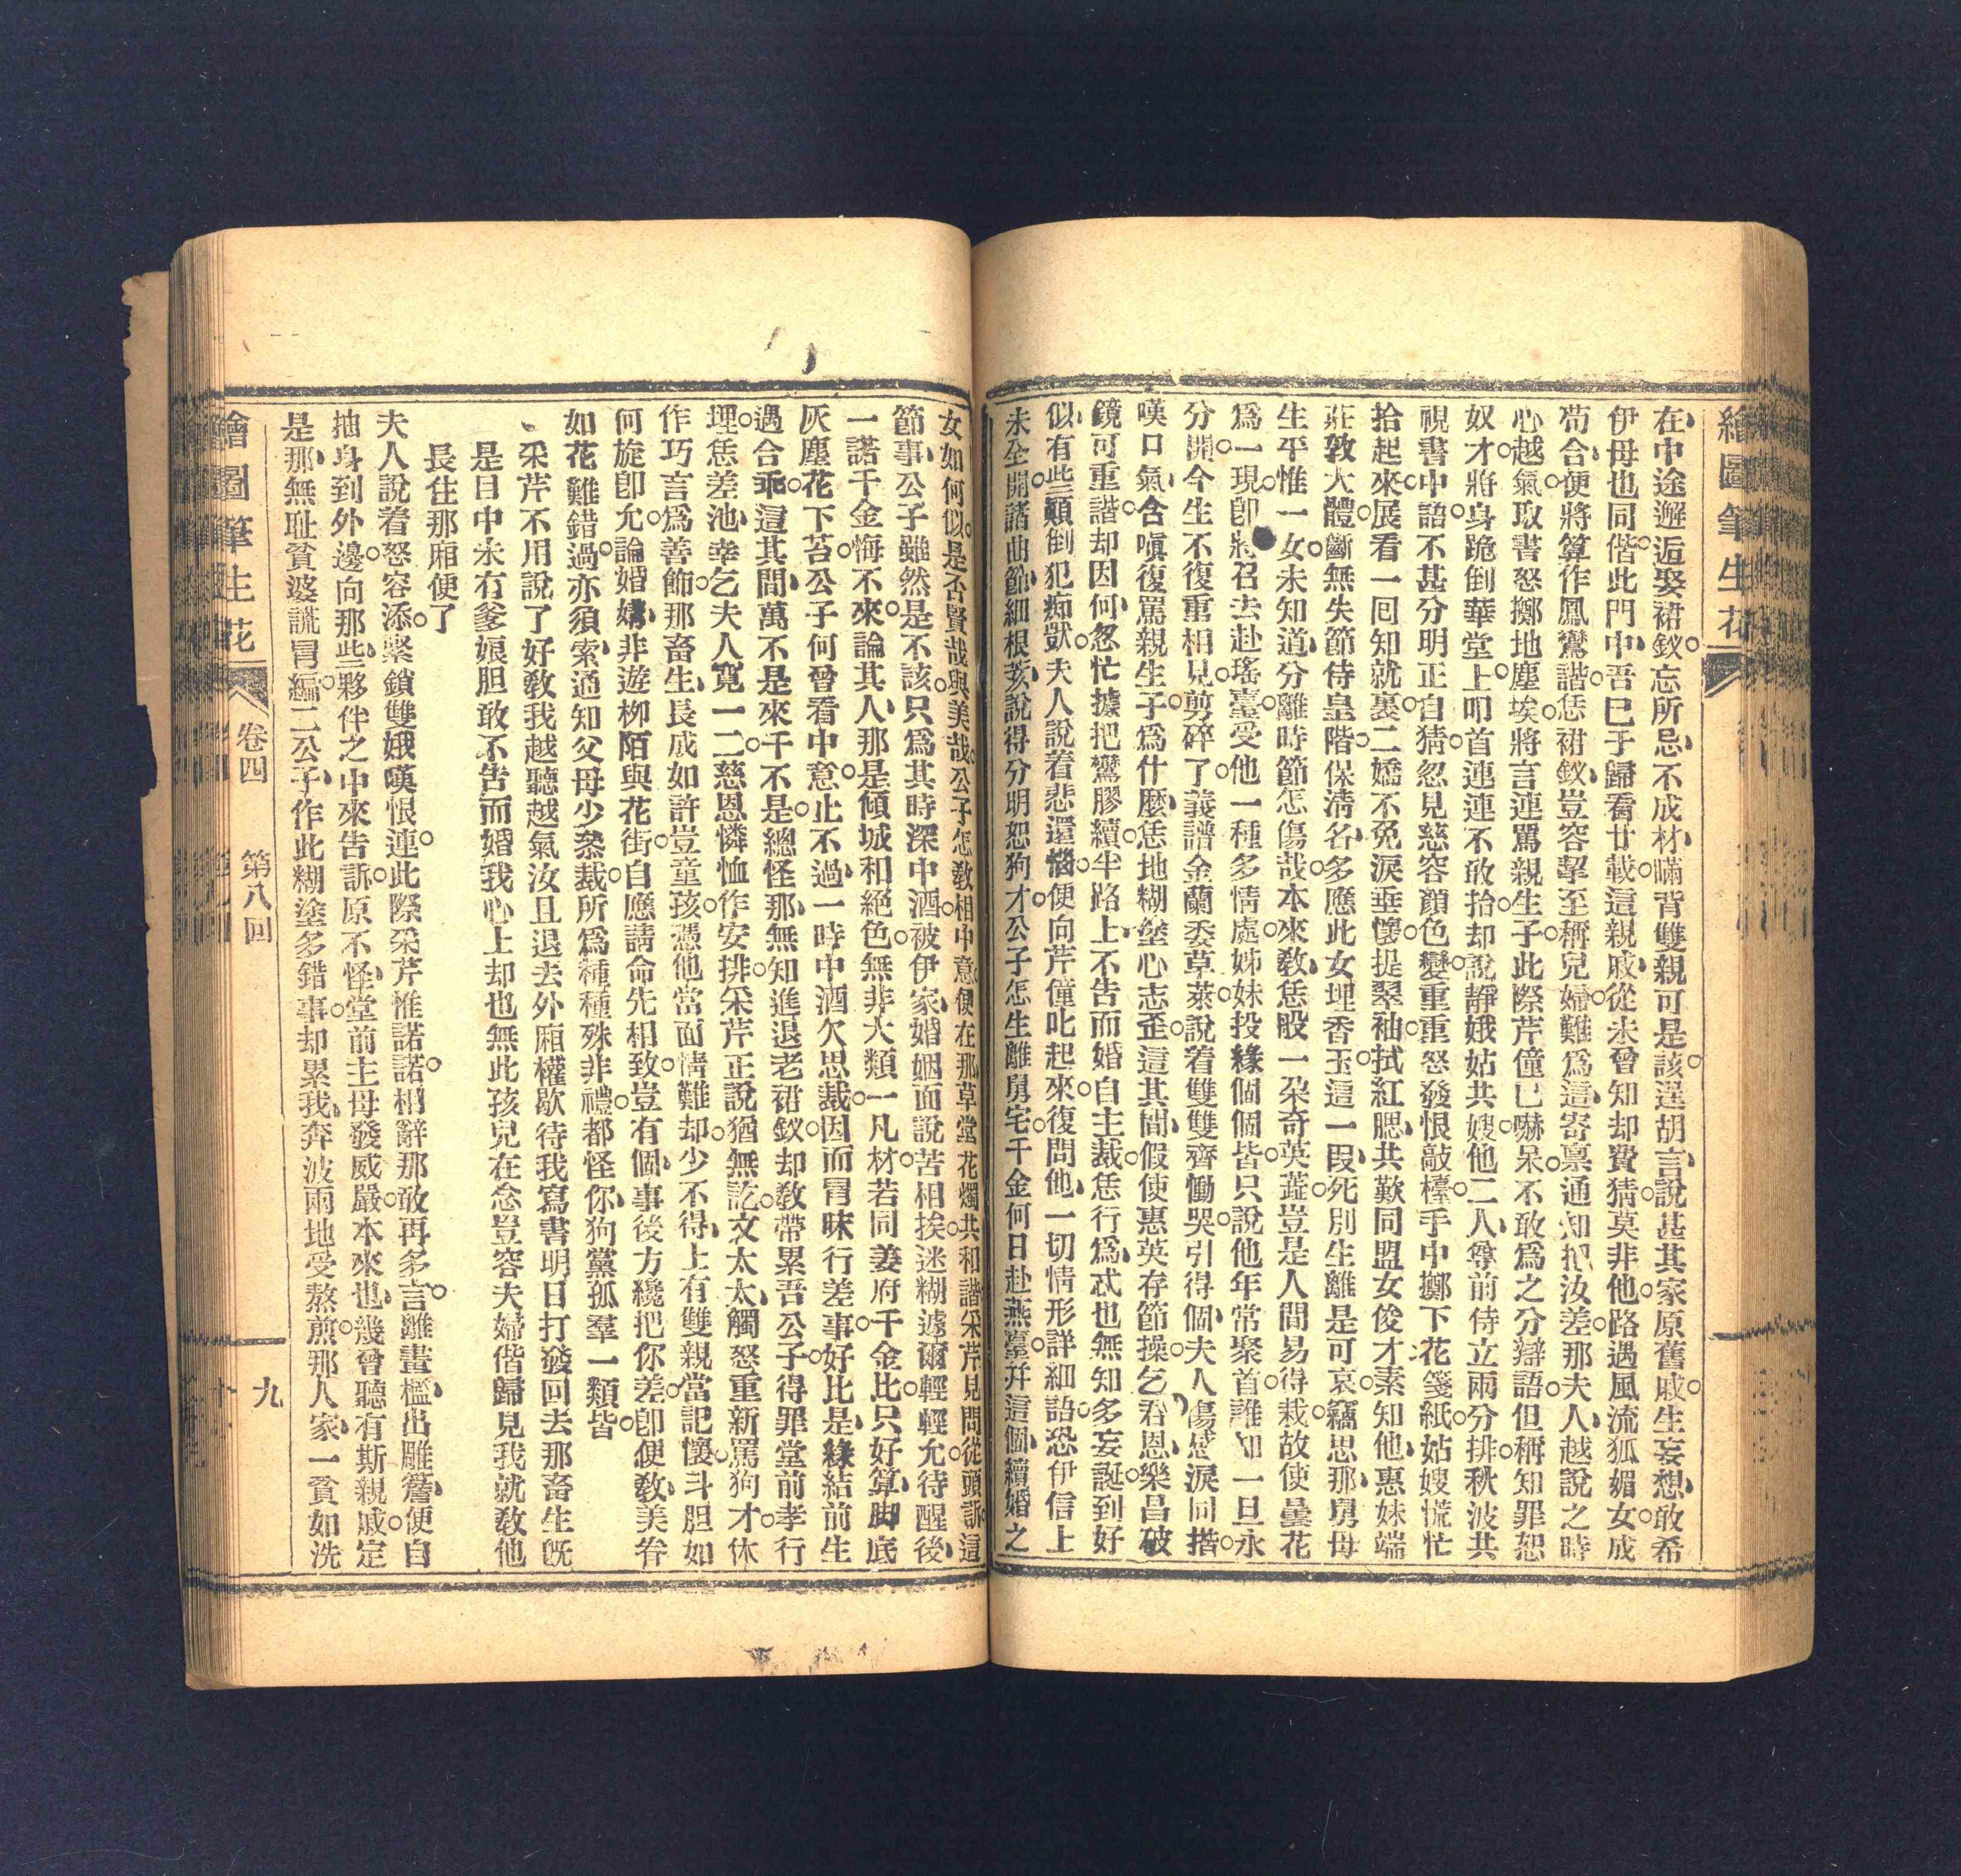 繪圖筆生花
在中途邂逅娶裙釵忘所忌不成材瞞背雙親可是該逞胡言說甚其家原舊戚生妄想敢希
伊母也同偕此門中吾已于歸看廿載這親戚從未曾知却費猜莫非他路遇風流狐媚女成
苟合便將算作鳳鸞諧恁裙釵豈容拏至稱兒婦難爲這寄禀通知把汝差那夫人越說之時
心越氣取書怒擲地塵埃將言連罵親生子此際芹僮已嚇呆不敢爲之分辯語但稱知罪恕
奴才將身跪倒華堂上叩首連連不敢抬却說靜娥姑共嫂他二人尊前侍立兩分排秋波共
視書中語不甚分明正自猜忽見慈容顏色變重重怒發恨敲檯手中擲下花箋紙姑嫂慌忙
拾起來展看一回知就裏二嬌不免淚垂懷提翠袖拭紅腮共歎同盟女俊才素知他惠妹端
莊敦大體斷無失節侍皇階保淸名多應此女埋香玉這一段死別生離是可哀竊思那舅母
生平惟一女未知道分離時節怎傷哉本來敎恁般一朶奇英蕋豈是人間易得栽故使曇花
爲一現卽將召去赴瑤臺受他一種多情處姊妹投緣個個皆只說他年常聚首誰知一旦永
分開今生不復重相見剪碎了義譜金蘭委草萊說着雙雙齊慟哭引得個夫人傷感淚同揩
嘆口氣含嗔復罵親生子爲什麼恁地糊塗心志歪這其間假使惠英存節操乞君恩樂昌破
鏡可重諧却因何忽忙據把鸞膠續半路上不告而婚自主裁恁行爲忒也無知多妄誕到好
似有些顚倒犯痴獃夫人說着悲還惱便向芹僮叱起來復問他一切情形詳細語恐伊信上
未全開諮曲節細根荄說得分明恕狗才公子怎生離舅宅千金何日赴燕臺幷這個續婚之
女如何似是否賢哉與美哉公子怎敎相中意便在那草堂花燭共和諧采芹見問從頭訴這
節事公子雖然是不該只爲其時深中酒被伊家婚姻面說苦相挨迷糊遽爾輕輕允待醒後
一諾千金悔不來論其人那是傾城和絕色無非大類一凡材若同姜府千金比只好算脚底
灰塵花下苔公子何曾看中意止不過一時中酒欠思裁因而冒昧行差事好比是緣結前生
遇合乖這其間萬不是來千不是總怪那無知進退老裙釵却敎帶累吾公子得罪堂前孝行
埋恁差池幸乞夫人寬一二慈恩憐恤作安排采芹正說猶無訖文太太觸怒重新罵狗才休
作巧言爲善飾那畜生長成如許豈童孩憑他當面情難却少不得上有雙親當記懷斗胆如
何旋卽允論婚媾非遊柳陌與花街自應請命先相致豈有個事後方纔把你差卽便敎美眷
如花難錯過亦須索通知父母少叅裁所爲種種殊非禮都怪你狗黨孤羣一類皆
采芹不用說了好敎我越聽越氣汝且退去外廂權歇待我寫書明日打發回去那畜生旣
是目中未有爹娘胆敢不告而婚我心上却也無此孩兒在念豈容夫婦偕歸見我就敎他
長住那廂便了
夫人說着怒容添緊鎖雙娥嘆恨連此際采芹惟諾諾相辭那敢再多言離畫檻出雕簷便自
抽身到外邊向那些夥伴之中來告訴原不怪堂前主母發威嚴本來也幾曾聽有斯親戚定
是那無耻貧婆謊冒編二公子作此糊塗多錯事却累我奔波兩地受熬煎那人家一貧如洗
繪圖筆生花 卷四 第八回 九